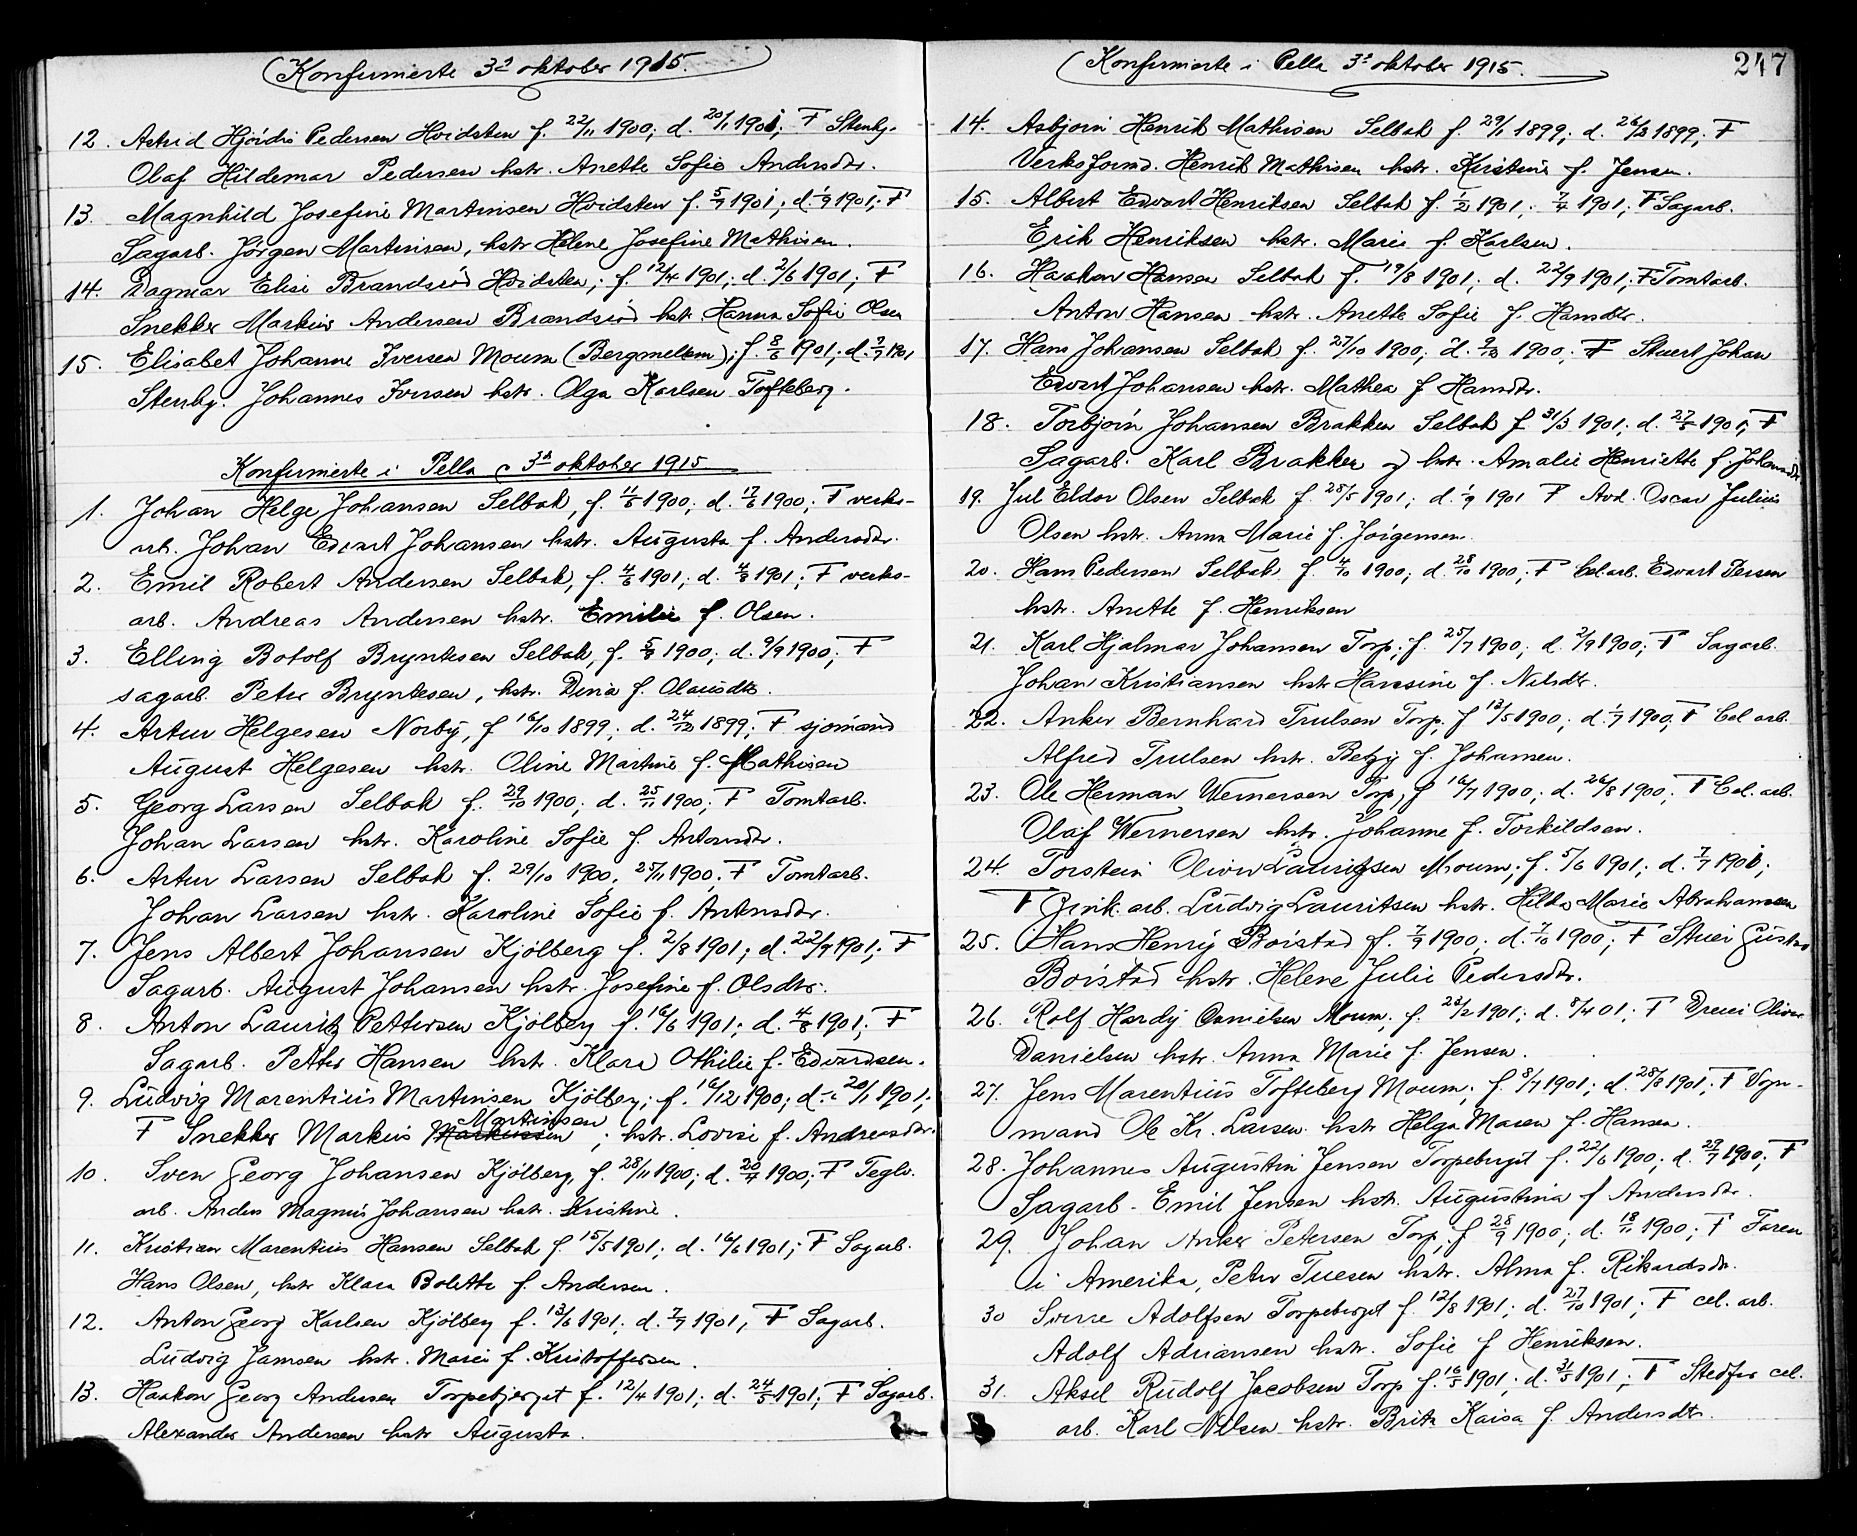 Konfirmerte 3d oktober 1915.
12. Astrid Hjördis Pedersen Hvidsten f. 22/11 1900; d. 20/1 1901; F Stenhj.
Olaf Hildemar Pedersen hstr. Anette Sofie Andersdtr.
13. Magnhild Josefine Martinsen Hvidsten f. 5/7 1901; d. 1/9 1901; F
Sagarb. Jörgen Martinsen, hstr Helene Josefine Mathisen.
14. Dagmar Elise Brandsröd Hvidsten; f. 12/4 1901; d. 2/6 1901; F
Snekker Markus Andersen Brandsröd hstr. Hanna Sofie Olsen
15. Elisabet Johanne Iversen Moum (Bergmellem); f. 8/6 1901; d. 7/7 1901
Stenhj. Johannes Iversen hstr. Olga Karlsen Tofteberg.
Konfirmerte i Pella 3d oktober 1915
1. Johan Helge Johansen Selbak, f. 11/5 1900; d. 17/6 1900; F verks-
arb. Johan Edvart Johansen hstr. Augusta f. Andersdtr.
2. Emil Robert Andersen Selbak, f. 4/6 1901; d. 4/8 1901; F verks-
arb. Andreas Andersen hstr. Emilie f. Olsen.
3. Elling Botolf Bryntesen Selbak, f. 5/8 1900; d. 9/9 1900; F
sagarb. Peter Bryntesen, hstr. Dina f. Olausdtr.
4. Artur Helgesen Norby, f 16/10 1899; d. 24/12 1899; F sjomand
August Helgesen hstr. Oline Martine f. Mathisen
5. Georg Larsen Selbak f. 29/10 1900; d. 25/11 1900; F Tomtarb.
Johan Larsen hstr. Karoline Sofie f. Antonsdtr.
6. Artur Larsen Selbak f. 29/10 1900, 25/11 1900; F Tomtarb.
Johan Larsen hstr. Karoline Sofie f. Antonsdtr.
7. Jens Albert Johansen Kjölberg f. 2/8 1901; d. 22/9 1901; F
Sagarb. August Johansen hstr. Josefine f. Olsdtr.
8. Anton Lauritz Pettersen Kjölberg f. 16/6 1901; d. 4/8 1901; F
Sagarb. Petter Hansen hstr. Klara Othilie f. Edvardsen.
9. Ludvig Marentius Martinsen Kjölberg; f. 16/12 1900; d. 20/1 1901;
Martinsen
F Snekker Markus Markussen; hstr. Lovise f. Andreasdtr.
10. Sven Georg Johansen Kjölberg, f. 28/11 1900; d. 1900; F Teglv.
arb. Anders Magnus Johansen hstr. Kristine.
11. Kristian Marentius Hansen Selbak f. 15/5 1901; d. 16/6 1901; F Sagarb.
Hans Olsen, hstr Klara Bolette f. Andersen.
12. Anton Georg Karlsen Kjölberg f. 13/6 1901; d. 7/7 1901, F Sagarb.
Ludvig Jamsen hstr. Marie f. Kristoffersen.
13. Haakon Georg Andersen Torpebjerget f. 12/4 1901; d. 24/5 1901; F Sagarb.
Alexander Andersen hstr Augusta.
Konfirmerte i Pella 3d oktober 1915.
247
14. Asbjørn Henrik Mathisen Selbak f. 29/1 1899; d. 26/3 1899; F
Verksformd. Henrik Mathisen hstr. Kristine f. Jensen.
15. Albert Edvart Henriksen Selbak f. 1/2 1901; 7/4 1901; F Sagarb.
Erik Henriksen hstr. Marie f. Karlsen.
16. Haakon Hansen Selbak f. 19/8 1901; d. 22/9 1901; F Tomtarb.
Anton Hansen hstr. Anette Sofie f. Hansdtr.
17. Hans Johansen Selbak f. 27/10 1900; d. 1900; F Stuert Johan
Edvart Johansen hstr. Mathea f Hansdtr.
18. Torbjörn Johansen Brakken Selbak f 31/3 1901; d. 27/5 1901; F
Sagarb. Karl Brakken og hstr. Amalie Henriette f. Johansdtr
19. Jul Eldor Olsen Selbak f. 28/5 1901; d. 1/9 1901 F Avd. Oscar Julius
Olsen hstr. Anna Marie f. Jörgensen.
20. Hans Pedersen Selbak f. 4/10 1900; d. 28/10 1900; F Cel.arb. Edvart Persen
hstr. Anette f. Henriksen
21. Karl Hjalmar Johansen Torp; f. 25/7 1900; d. 2/9 1900; F Sagarb.
Johan Kristiansen hstr Haresine f. Nilsdtr.
22. Anker Bernhard Trulsen Torp, f 13/5 1900; d. 1/7 1900; F Cel arb.
Alfred Trulsen hstr. Betzy f. Johansen.
23. Ole Herman Wernersen Torp, f 16/7 1900; d. 26/8 1900; F Cel. arb.
Olaf Wernersen hstr. Johanne f. Torkildsen.
24. Torstein Oliver Lauritzen Moum; f. 5/6 1901; d. 7/7 1901;
F Grvk. arb. Ludvig Lauritsen hstr. Hilda Marie Abrahamsen
25. Hans Henry Böistad f. 7/9 1900; d. 7/10 1900; F Stuer Gustav
Böistad hstr. Helene Julie Pedersdtr.
26. Rolf Hardy Danielsen Moum; f. 28/2 1901; d. 8/4 01; F Dreier Oliver
Danielsen hstr. Anna Marie f. Jensen.
27. Jens Marentius Tofteberg Moum; f. 8/7 1901; d. 25/8 1901; F Vogn-
mand Ole Kr. Larsen hstr Helga Maren f. Hansen.
28. Johannes Augustin Jensen Torpeberget f. 22/6 1900; d. 29/7 1900; F
Sagarb. Emil Jensen hstr. Augustina f Andersdtr.
29. Johan Anker Petersen Torp; f 28/9 1900; d. 18/11 1900; F Faren
i Amerika, Peter Tuesen hstr. Alma f. Rikardsdtr.
30 Sverre Adolfsen Torpeberget f. 12/8 1901; d. 27/10 1901; F cel. arb.
Adolf Adriansen hstr. Sofie f Henriksen.
31. Aksel Rudolf Jacobsen Torp f. 16/5 1901; d. 1901; F Stedfar cel.
arb. Karl Nilsen hstr. Brita Kaisa f Andersdtr.